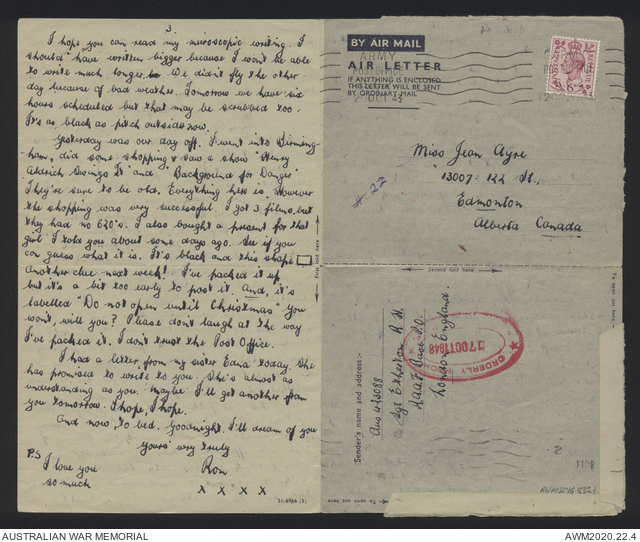 3.
I hope you can read my microscopic writing. I
should have written bigger because I won't be able
to write much longer. We didn't fly the other
day because of bad weather. Tomorrow we have six
hours scheduled but that may be scrubbed too.
It's as black as pitch outside now.
Yesterday was our day off. I went into Birming-
ham, did some shopping & saw a show "Henry
Aldrich Swings It" and "Background for Danger"
They're sure to be old. Everything here is. However
the shopping was very successful. I got 3 films, but
they had no 620's. I also bought a present for that
girl I told you about some days ago. See if you
can guess what it is. It's black and this shape
Another clue next week! I've packed it up
but it's a bit too early to post it. And, it's
labelled "Do not open until Christmas" You
won't, will you? Please don't laugh at the way
I've packed it. I don't trust the Post Office.
I had a letter from my sister Edna today. She
has promised to write to you. She's almost as
understanding as you. Maybe I'll get another from
you tomorrow. I hope, I hope.
And now to bed. Goodnight. I'll dream of you
Yours very truly
Ron
P.S
I love you
so much
X X X X
11-6966 (1)
First fold here
BY AIR MAIL
AIR LETTER
IF ANYTHING IS ENCLOSED
THIS LETTER WILL BE SENT
BY ORDINARY MAIL
ARMY
POST OFFICE
OCT 43
POSTAGE
6D
# 22
Miss Jean Ayre
13007-122 St.,
Edmonton
Alberta Canada
Second fold here
To open cut here
Sender's name and address:-
Aus 423088
Sgt
R. H.
RAAF Base P.O.
London England.
ORDERLY
17 OCT 1943
To open cut here
AWM2020.22.4
AUSTRALIAN WAR MEMORIAL
AWM2020.22.4